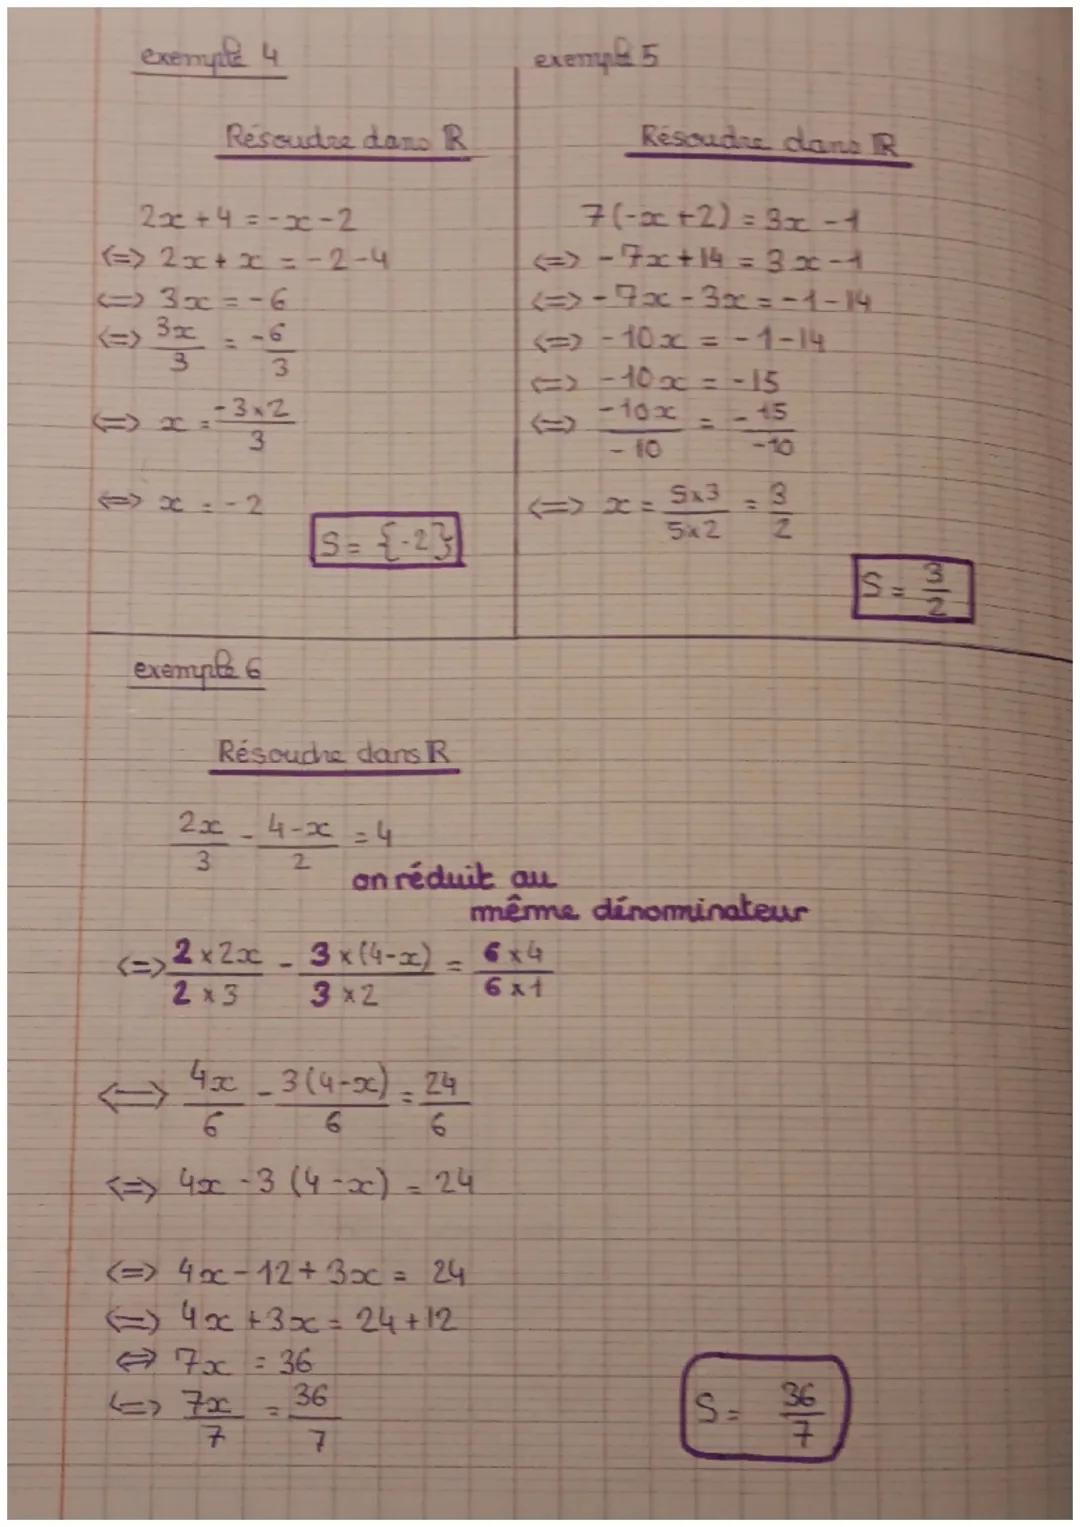 exemple 4
Résoudre dans ℝ
2x + 4 = -x - 2
<=> 2x + x = -2 - 4
<=> 3x = -6
<=> 3x/3 = -6/3
<=> x = -3×2/3
<=> x = -2
S = {-2}
exemple 5
Résoudre dans ℝ
7(-x+2) = 3x - 1
<=> -7x + 14 = 3x - 1
<=> -7x - 3x = -1 - 14
<=> -10x = -1 - 14
<=> -10x = -15
<=> -10x/-10 = -15/-10
<=> x = 5×3/5×2 = 3/2
S = 3/2
exemple 6
Résoudre dans ℝ
2x/3 - 4-x/2 = 4
on réduit au
même dénominateur
<=> 2×2x/2×3 - 3×(4-x)/3×2 = 6×4/6×1
<=> 4x/6 - 3(4-x)/6 = 24/6
<=> 4x - 3(4-x) = 24
<=> 4x - 12 + 3x = 24
<=> 4x + 3x = 24 + 12
<=> 7x = 36
<=> 7x/7 = 36/7
S = 36/7